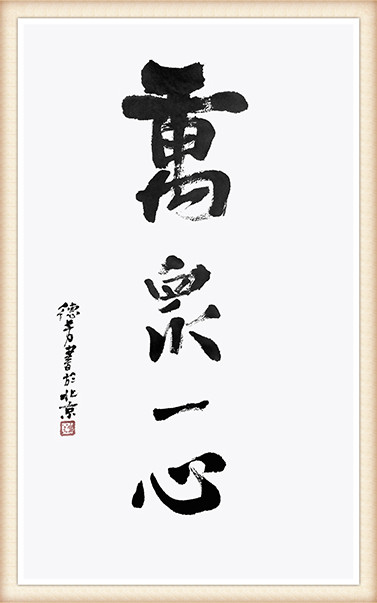 萬眾一心
德芳書於北京